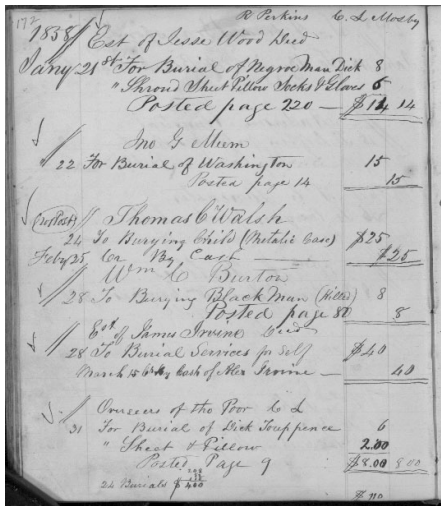 172 R Perkins C. L. Mosby
1858 Est of Jesse Wood Decd
Jany 21st For Burial of Negroe Man Dick 8
" Shroud Sheet Pillow Socks & Gloves 6
Posted page 220 — $14 14
Jno G Meem
22 For Burial of Washington 15
Posted page 14 15
(no Post) Thomas C Walsh
24 To Burying Child (Metalic Case) $25
Feby 25 Cr By Cash — $25
Wm C Burton
28 To Burying Black Man (Killed) 8
Posted page 80 8
Est of James Irvine Decd
28 To Burial Services for Self $40
March 15 by Cash of Alex Irvine — 40
Overseers of the Poor C L
31 For Burial of Dick Touppence 6
" Sheet & Pillow 2.00
Posted Page 9 $8.00 8 00
24 Burials $400